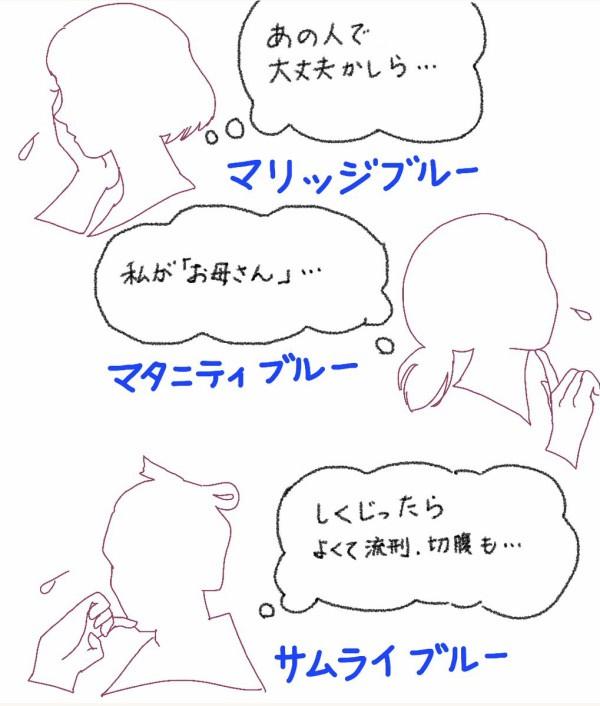 あの人で
大丈夫かしら…
マリッジブルー
私が「お母さん」…
マタニティブルー
しくじったら
よくて流刑、切腹も…
サムライブルー